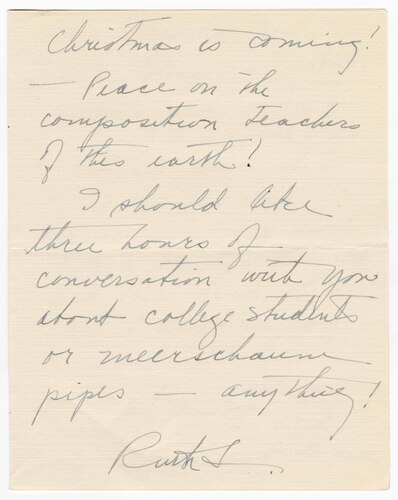 Christmas is coming!
— Peace on the
composition teachers
of this earth!
I should like
three hours of
conversation with you
about college students
or meerschaum
pipes — anything!
Ruth S.